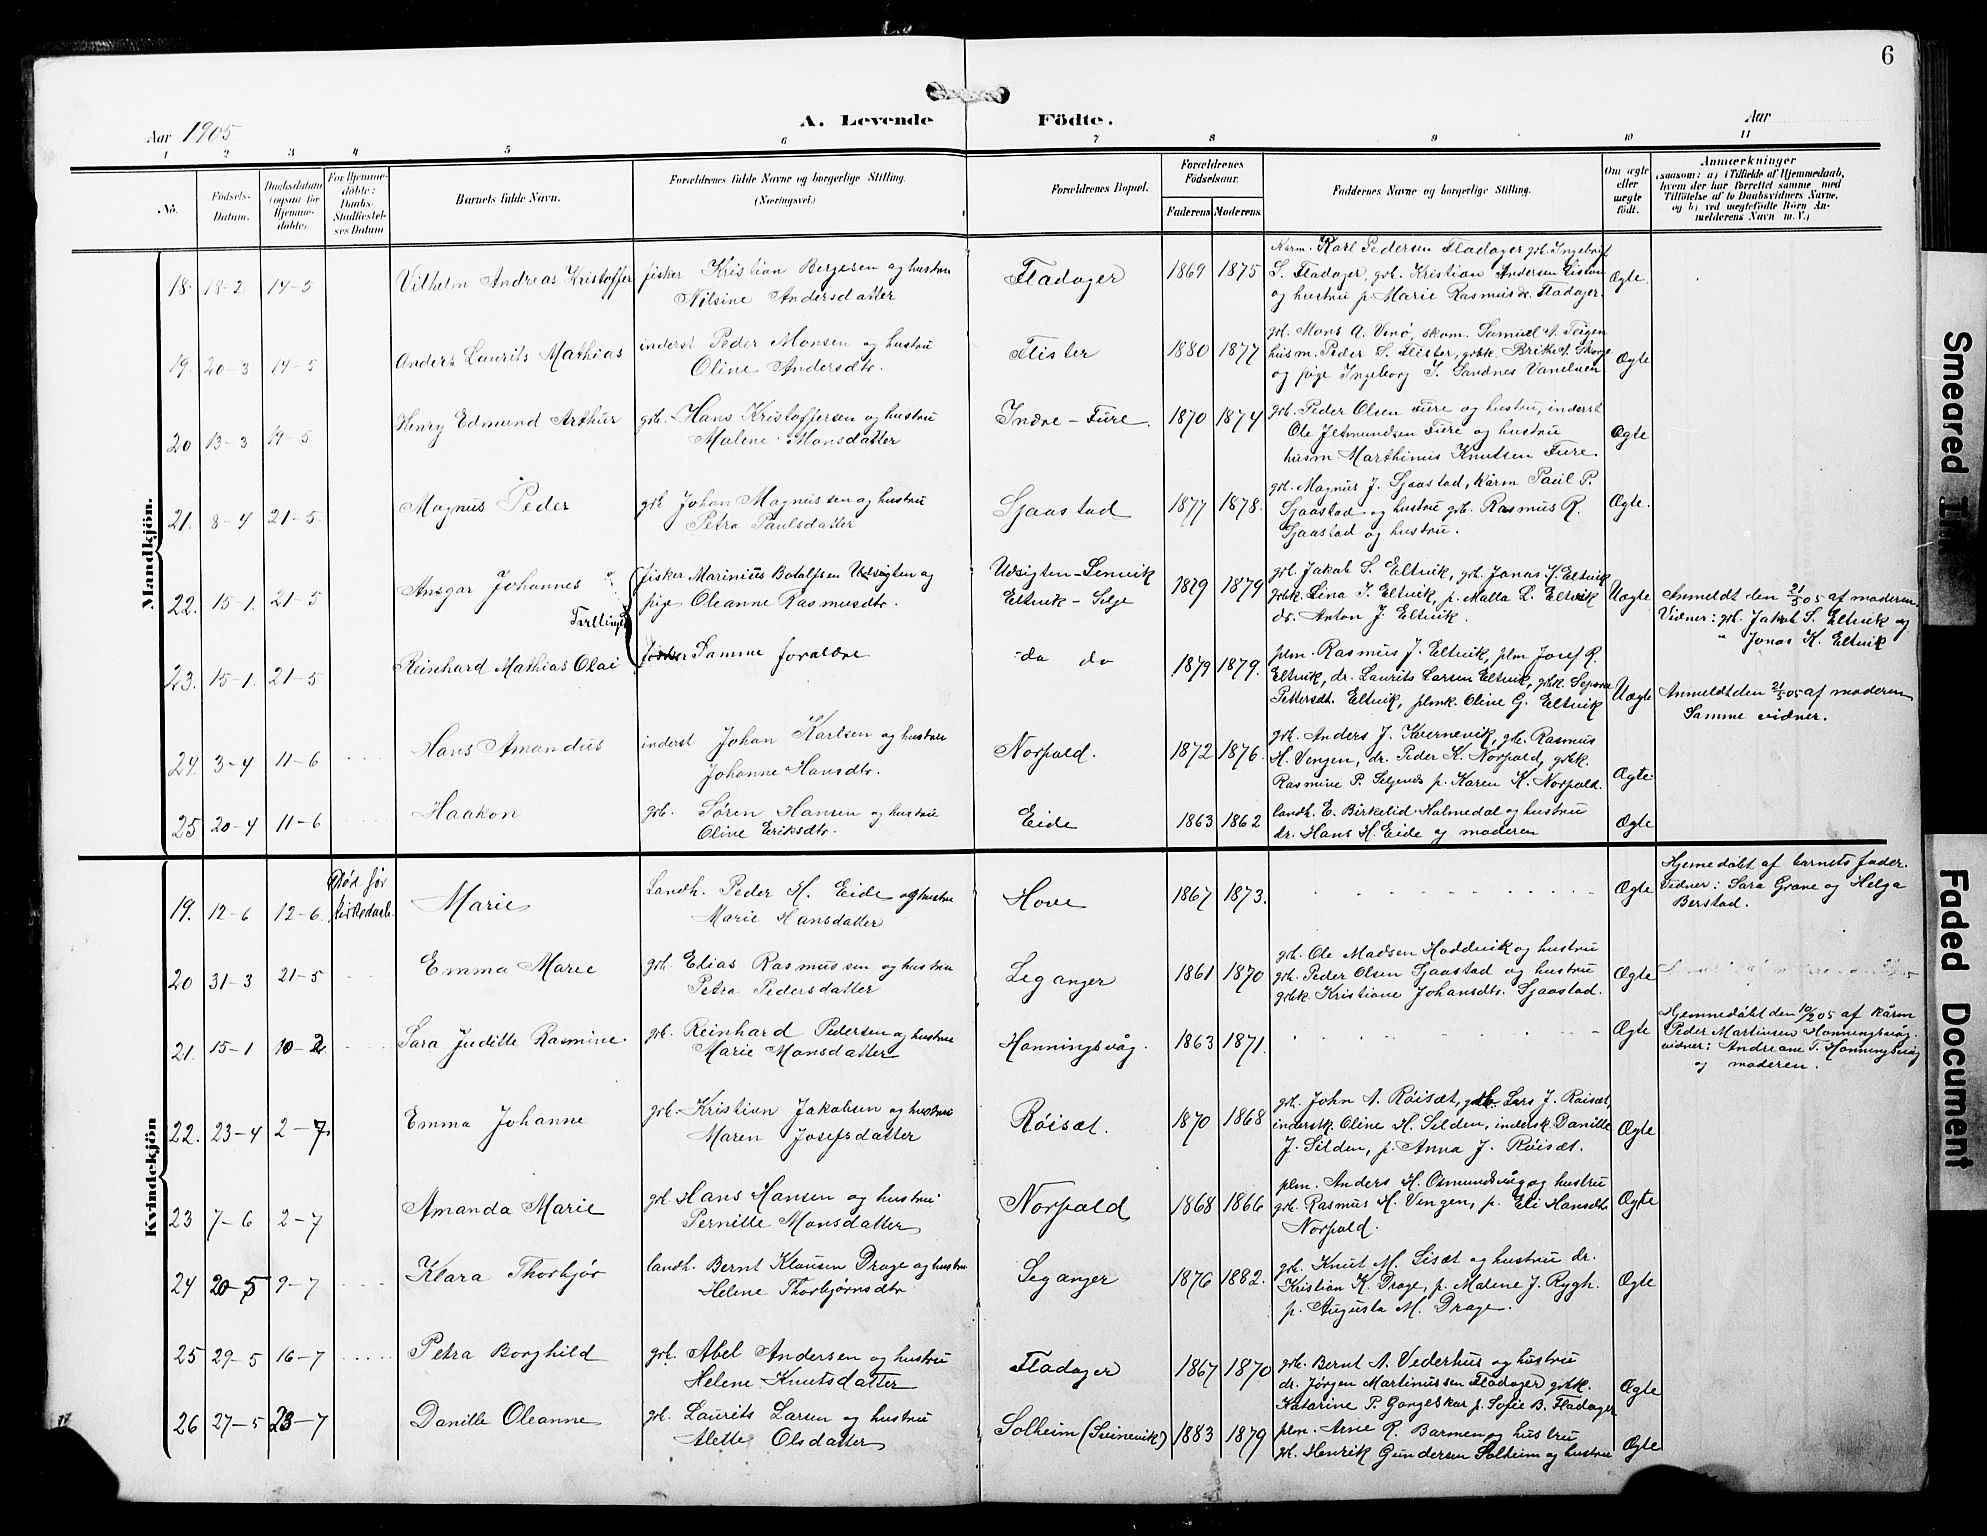 6
Aar 1905
A. Levende Födte.
Aar
1 2 3 4 5 6 7 8 9 10 11
No.
Födsels-Datum.
Daabsdatum (ogsaa for Hjemme-döbte)
For Hjemme-döbte: Daabs-Stadfæstel-ses Datum
Barnets fulde Navn.
Forældrenes fulde Navne og borgerlige Stilling. (Næringsvei.)
Forældrenes Bopæl.
Forældrenes Födselsaar.
Faderens Moderens
Faddernes Navne og borgerlige Stilling.
Om ægte eller uægte födt.
Anmærkninger
(saasom: a) i Tilfælde af Hjemmedaab, hvem der har forrettet samme, med Tilföielse af to Daabsvidners Navne, og b) ved uægtefödte Börn Anmelderens Navn m. V.)
Mandkjön.
18. 18-2 14-5 Vilhelm Andreas Kristoffer
fisker Kristian Børgesen og hustru
Nilsine Andersdatter
Fladager 1869 1875
Karm. Karl Pedersen Fladager, grb. Ingebrigt
S. Fladager, grb. Kristian Andersen
og hustru p. Marie Rasmusdr. Fladager.
Ægte
19. 20-3 14-5 Anders Laurits Mathias
inderst Peder Monsen og hustru
Oline Andersdtr.
Flister 1880 1877
grb. Mons A. Venø, skom. Samuel A. Teigen
husm. Peder S. Flister, grbk. Brithe A. Skorge
og pige Ingeborg I. Sandnes Vanelven
Ægte
20 13-3 19-5 Henry Edmund Arthur
grb. Hans Kristoffersen og hustru
Malene Monsdatter
Indre-Fure. 1870 1874
grb. Peder Olsen Fure og hustru, inderst
Ole Jetmundsen Fure og hustru
husm Marthinus Knutsen Fure.
Ægte
21. 8-4 21-5. Magnus Peder
grb Johan Magnussen og hustru
Petra Paulsdatter
Sjaastad 1877 1878.
grb. Magnus J. Sjaastad, Kårm Paul P.
Sjaastad og hustru grb. Rasmus R.
Sjaastad og hustru.
Ægte.
22. 15-1. 21-5 Ansgar Johannes
Tvillinger
fisker Marinius Botolfsen Udsigten og
pige Oleanne Rasmusdtr.
Udsigten-Lenvik
Eltvik-Selje
1879 1879
grb. Jakob S. Eltvik, grb. Jonas K. Eltvik
grbk. Lina J. Eltvik, p. Malla L. Eltvik
dr. Anton J. Eltvik.
Uægte
Anmeldt den 21/5 05 af moderen.
Vidner: grb. Jakob S. Eltvik og
" Jonas K. Eltvik
23. 15-1. 21-5 Reinhard Mathias Olai
fisker Samme forældre
do do 1879 1879.
plm. Rasmus J. Eltvik, plm Josef R.
Eltvik, dr. Laurits Larsen Eltvik, grbk. Sepora
Pettersdt. Eltvik, plmk. Oline G. Eltvik
Uægte
Anmeldt den 21/5 05 af moderen
Samme vidner.
24. 3-4 11-6 Hans Amandus
inderst Johan Karlsen og hustru
Johanne Hansdtr.
Norpold. 1872 1876.
grb. Anders J. Kvernevik, grb. Rasmus
H. Vengen, dr. Peder K. Norpold, grbk.
Rasmine P. p. Karen K. Norpold.
Ægte
25 20-4 11-6 Haakon
grb. Søren Hansen og hustru
Oline Eriksdtr.
Eide 1863 1862
landh. E. Birkelid Holmedal og hustru
dr. Hans H. Eide og moderen
Ægte
Kvindekjön
19. 12-6 12-6. Død før kirkedaab
Marie
Landh. Peder M. Eide og hustru
Marie Hansdatter
Hove 1867 1873.
Ægte
Hjemedøbt af barnets fader.
Vidner: Sara Grane og Helga
Berstad.
20 31-3 21-5 Emma Marie
grb. Elias Rasmussen og hustru
Petra Pedersdatter
Leganger 1861 1870
grb. Ole Madsen Hoddevik og hustru
grb. Peder Olsen Sjaastad og hustru
grbk. Kristiane Johansdtr. Sjaastad.
Ægte
21. 15-1 10-2 Sara Juditte Rasmine.
grb. Reinhard Pedersen og hustru
Marie Monsdatter
Honningsvåg. 1863 1871.
Ægte
Hjemmedøbt den 10/2 05 af kårm
Peder Martinsen Honningsvåg.
vidner: Andreane T. Honningsvåg
og moderen.
22. 23-4 2-7. Emma Johanne
grb. Kristian Jakobsen og hustru
Maren Josefsdatter
Røiset. 1870 1868
grb. John A. Røisæt, grb. Lars J. Røisæt,
inderstk. Oline H. Silden, indersk. Danille
J. Silden, p. Anna J. Røisæt.
Ægte
23 7-6 2-7 Amanda Marie
grb. Hans Hansen og hustru
Pernille Monsdatter
Norpold 1868 1866
plm. Anders H. Osmundsvåg og hustru
grb. Rasmus H. Vengen, p. Eli Hansdtr
Norpold.
Ægte
24 20-5 9-7 Klara Thorbjør
landh. Bernt Klausen Drage og hustru
Helene Thorbjørnsdtr.
Leganger 1876 1882.
grb. Knut M. Liset og hustru dr.
Kristian K. Drage, p. Malene J. Rygh.
p. Augusta M. Drage.
Ægte
25 29-5 16-7 Petra Borghild
grb. Abel Andersen og hustru
Helene Knutsdatter
Fladager 1867 1870
grb. Bernt A. Vederhus og hustru
dr. Jørgen Martinussen Fladager grbk.
Katarine P. Gangeskar p. Sofie B. Fladager
Ægte
26 27-5 23-7 Danille Oleanne
grb. Laurits Larsen og hustru
Alette Olsdatter
Solheim (Svinevik) 1883 1879
plm. Arne R. Barmen og hustru
grb. Henrik Gundersen Solheim og hustru
Ægte
Smeared Ink
Faded Document